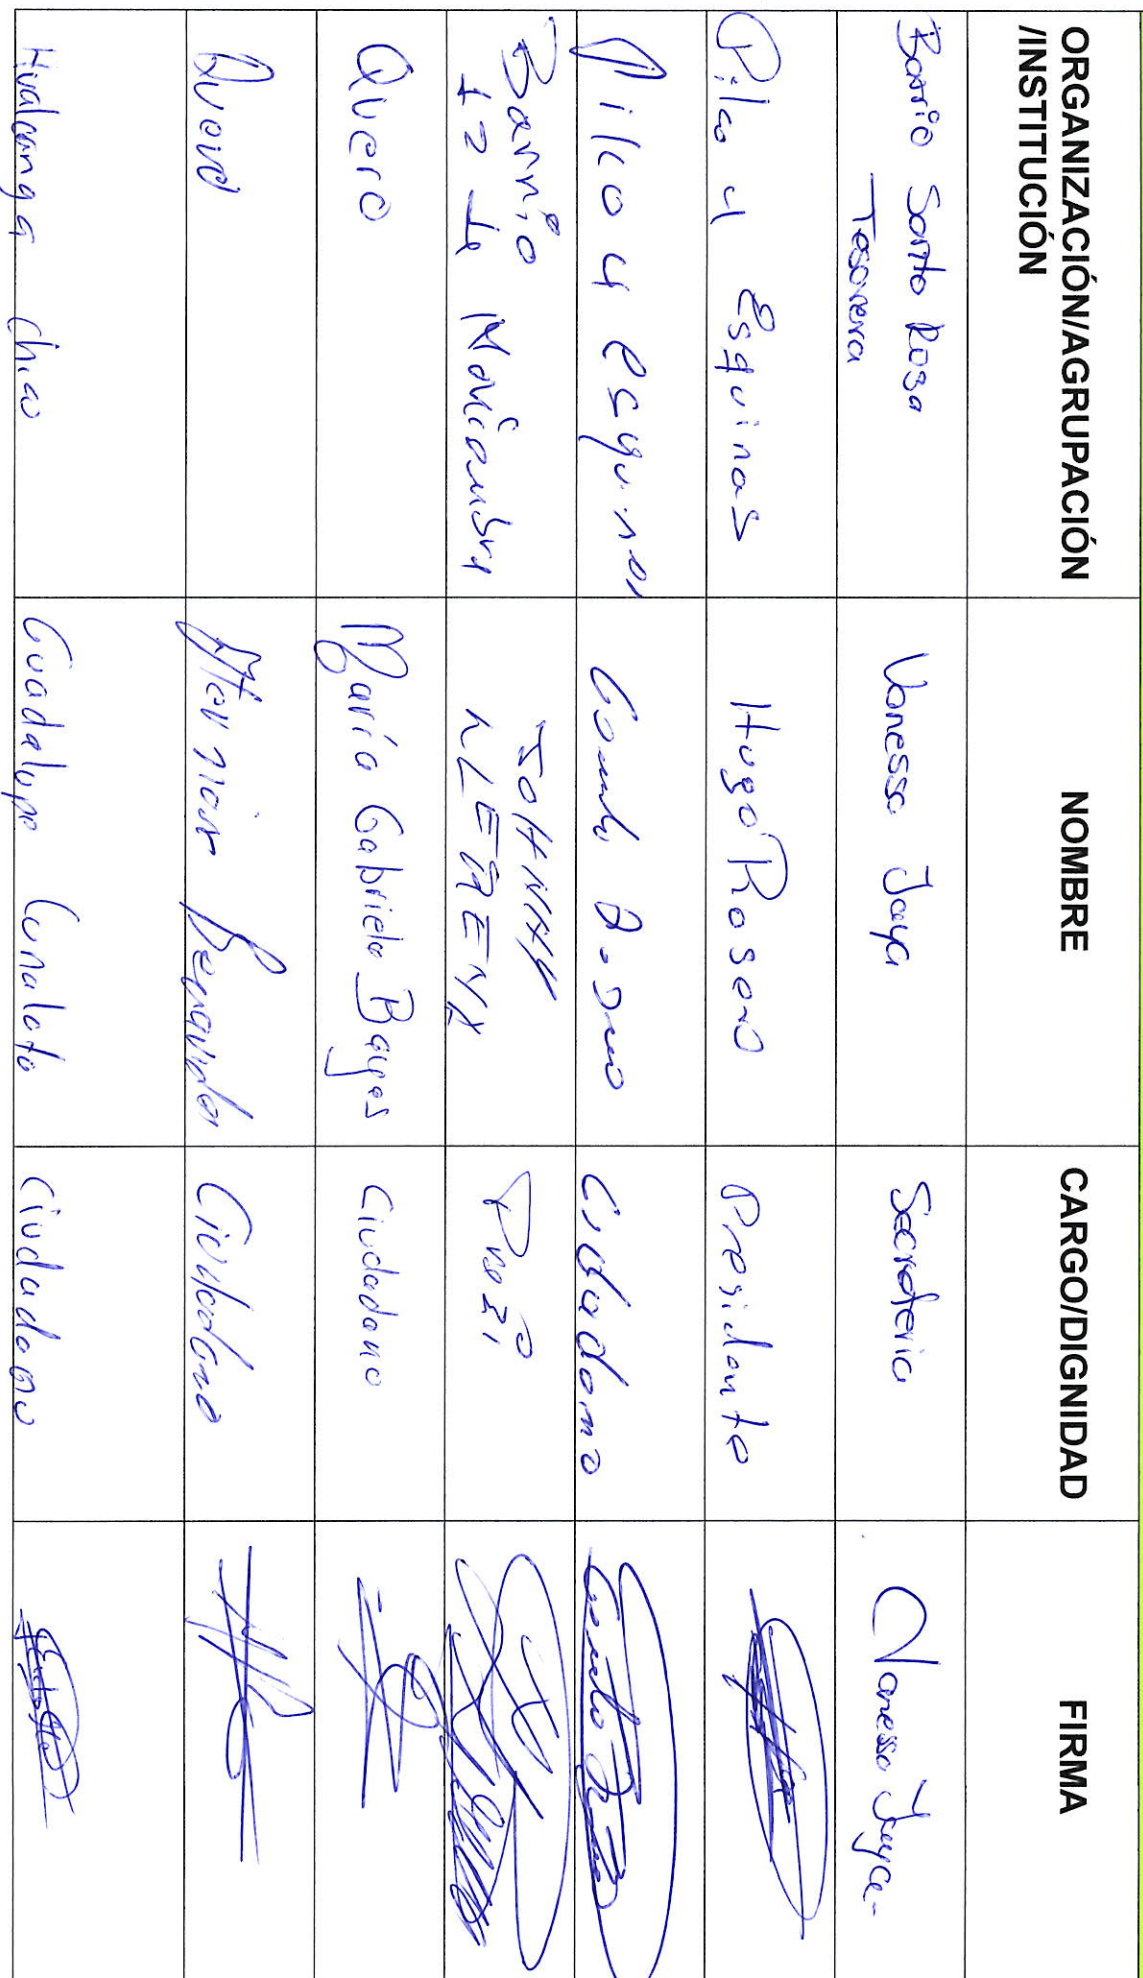 ORGANIZACIÓN/AGRUPACIÓN
/INSTITUCIÓN
NOMBRE
CARGO/DIGNIDAD
FIRMA
Barrio Santa Rosa
Tesorera
Vanessa Jaya
Secretaria
Vanessa Jaya
Pilco y Esquinas
Hugo Rosero
Presidente
Pilco y esquinas
Ciudadano
Barrio
12 de Noviembre
JOHNNY
LLERENA
Quero
María Gabriela Bayas
Ciudadano
Quero
Hernán Benavides
Ciudadano
Hualcanga Chico
Guadalupe Cunalata
Ciudadano